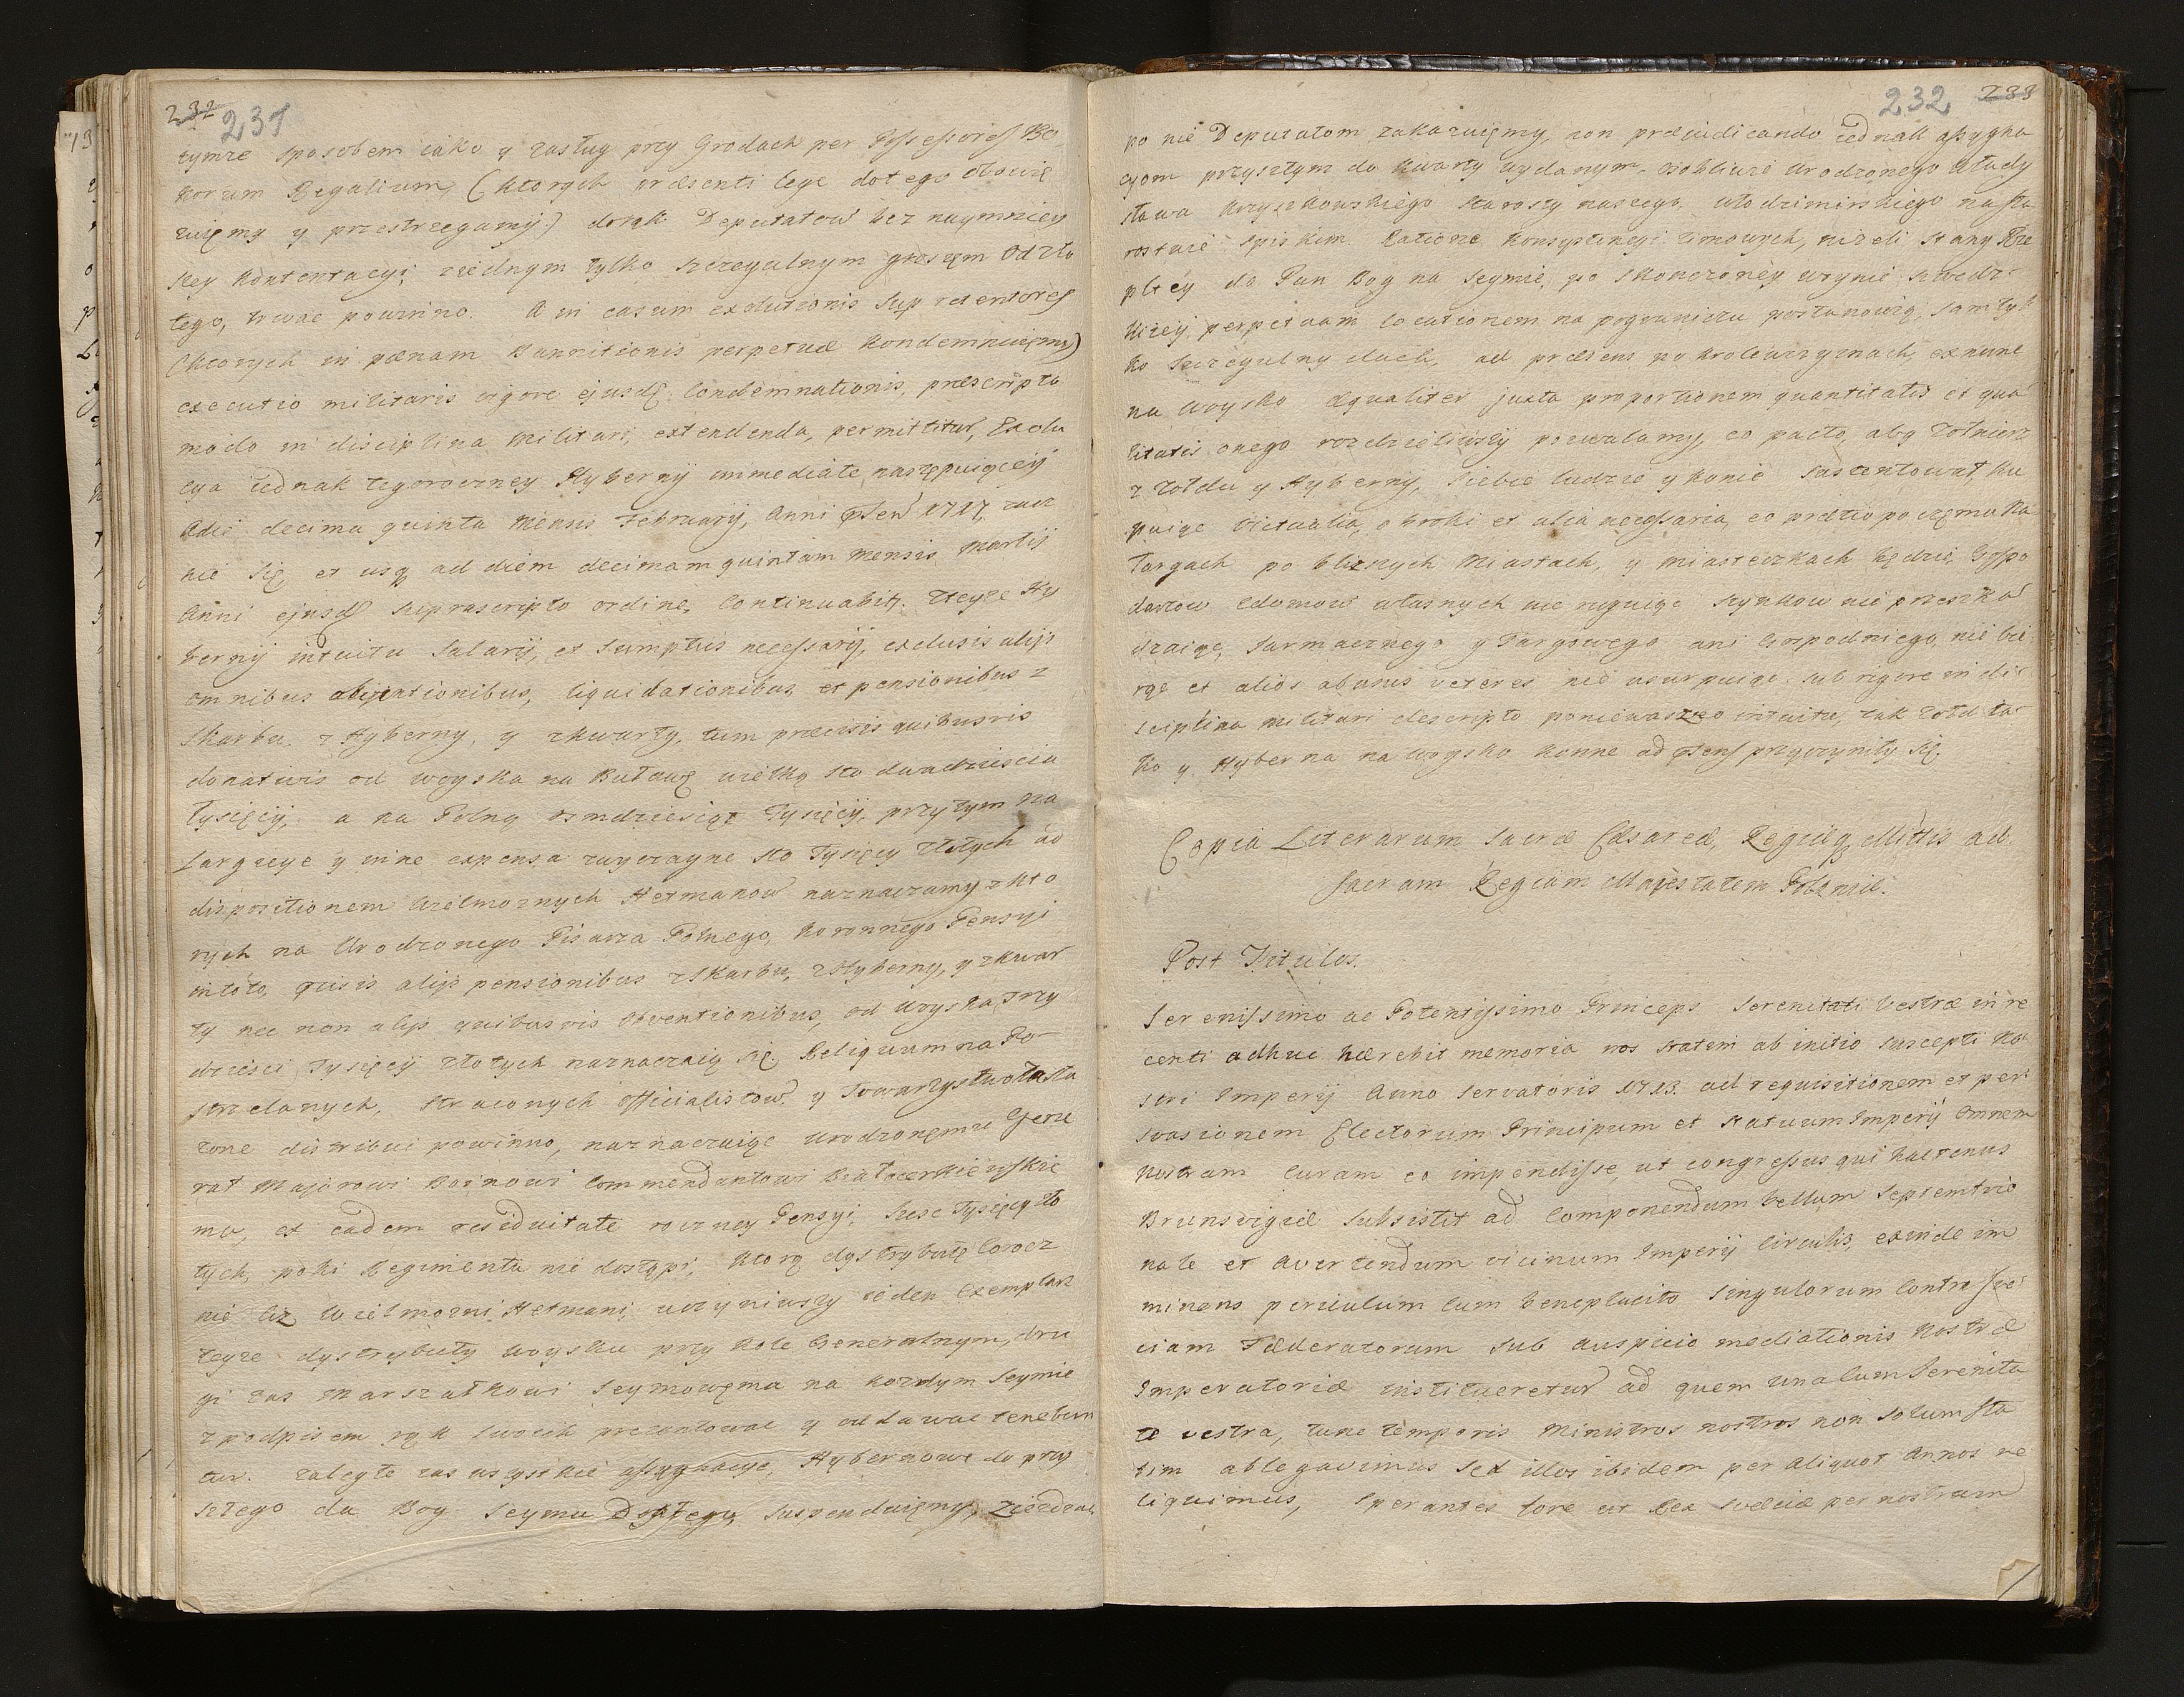 232 231
tymże sposobem iako y zasług przy Grodach per Possessores Bo
norum Regalium, (ktorych præsenti lege do tego obowię
zuięmy y przestrzegamy) do rąk Deputatow bez naymnieỳ
szey kontentacyi, ziednym tylko szczegulnym groszęm od zło
tego, trwac powinno. A in casum exolutionis sup retentores
(ktorych in pœnam Bannitionis perpetuæ kondemnuięmy)
executio militaris vigore ejusdę Condemnationis, præscripto
modo in disciplina Militari, extendenda, permittitur, Exolu
cya iednak tegoroczney Hyberny immediatè następuiącey
A die decima quinta Mensis February, Anni præsen 1717, zacz
nie się, et usq ad diem decimam quintam Mensis Martij
Anni ejusd suprascripto ordine, Continuabit. Zteyże Hy
berny intuitu Salarij, et Sumptus necessarij, exclusis alijs
omnibus liquidationibus, et pensionibus z
Skarbu, z Hyberny, y zkwarty, tum præcisis quibusvis
donativis od woyska na Buławę wielką sto dwadziescia
Tysięcy, a na Polną osmdziesiąt Tysięcy, przytym na
Largicye y inne expensa zwyczayne sto Tysięcy Złotych ad
dispositionem Wielmożnych Hetmanow naznaczamy z kto
rych na Urodzonego Pisarza Polnego, Koronnego Pensyi
in toto, præcisis alijs pensionibus z Skarbu, z Hyberny, y z kwar
ty nec non alijs quibusvis obventionibus, od Woyska, Trzy
dziesci Tysięcy złotych naznaczaią się. Reliquum na Po-
strzelanych, straconych officialistow y Towarzystwo Zasłu
żone distribui powinno, naznaczaiąc Urodzonęmu Gene
rał Majorowi Boinowi Commendantowi Białocerkiewskie
mu, ex eadem residuitate roczney Pensyi, szesc Tysięcy zło
tych, poki Regimentu nie dostąpi, ktorą dystrybutę Corocz
nie Wielmożni Hetmani, uczyniwszy ieden Exemplarz
teyże dystrybuty woysku przy kole Generalnym, dru
gi zas Marszałkowi Seymowęmu na każdym Seymie
z podpisem rąk swoich prezentowac y oddawac tenebun
tur. Zaległe zas wszystkie assygnacye, Hybernowe do przy
szłego da Bog Seymu suspenduięmy, Zieżdżac
232 233
po nie Deputatom zakazuięmy, non præjudicando iednak assygna
cyom przyszłym do kwarty wydanym. osobliwie Urodzonego Włady
sława Krzyszkowskiego Starosty naszego Włodzimirskiego na Sta
rostwie Spiskim. Ratione konsystencyi zimowych, niżeli Stany Rze
pltey da Pan Bog na Seymie, po skonczoney woynie szwedz
kiey, perpetuam locationem na pograniczu postanowią, sam tyl
ko szczegulny dach, ad præsens po krolewszyznach, ex nunc
na Woysko æqualiter juxta proportionem quantitatis et qua
litatis onego rozdzieliwszy pozwalamy, eo pacto, aby Zołnierz
z żołdu y Hyberny, siebie ludzie y konie sustentował, ku
puiąc Victualia, obroki et alia necessaria, eo prætio po częmu na
Targach po bliższych Miastach, y Miasteczkach będzie, Gospo
darzow z domow własnych nie ruguiąc szynkow nie przeszka
dzaiąc, Jarmacznego y Targowego ani Gospodniego, nie bio
rąc et alios abusus veteres nie usurpuiąc sub rigore in di
sciplina Militari descripto ponieważ eo intuitu, tak żołd ia
ko y Hyberna na Woysko konne ad præsens przyczyniły się.
Copia Literarum Sacræ Cæsareæ, Regiæq Mttis ad
Sacram Regiam Majestatem Poloniæ.
Post Titulos.
Serenissime ac Potentissime Princeps Serenitati Vestræ in re
centi adhuc hærebit memoria nos statim ab initio suscepti No
stri Imperij Anno Servatoris 1713. ad requisitionem et per
svasionem Electorum Principum et Statuum Imperij Omnem
Nostram Curam eo impendisse, ut congressus qui hactenus
Brunsvigiæ subsistit ad Componendum bellum Septemtrio
nale et Avertendum vicinum Imperij Circulis, exinde im
minens periculum Cum beneplacito Singulorum Contra Sve
ciam Fæderatorum sub auspicio mediationis Nostræ
Imperatoriæ institueretur ad quem una Cum Serenita
te vestra, tunc temporis Ministros nostros non solum sta
tim ablegavimus sed illos ibidem per aliquot Annos re
liquimus, sperantes fore ut Rex Sveciæ per nostrum